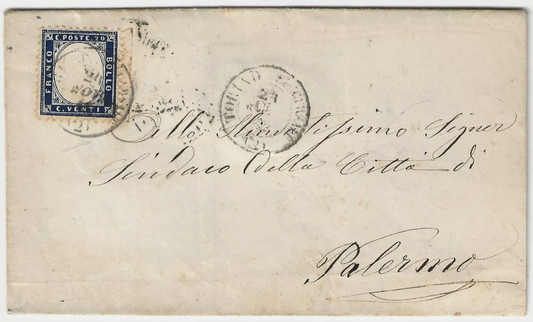 C. POSTE. 20
FRANCO
BOLLO
C. VENTI
TORINO
21
12
All' Illustrissimo Signor
Sindaco della Città di
Palermo